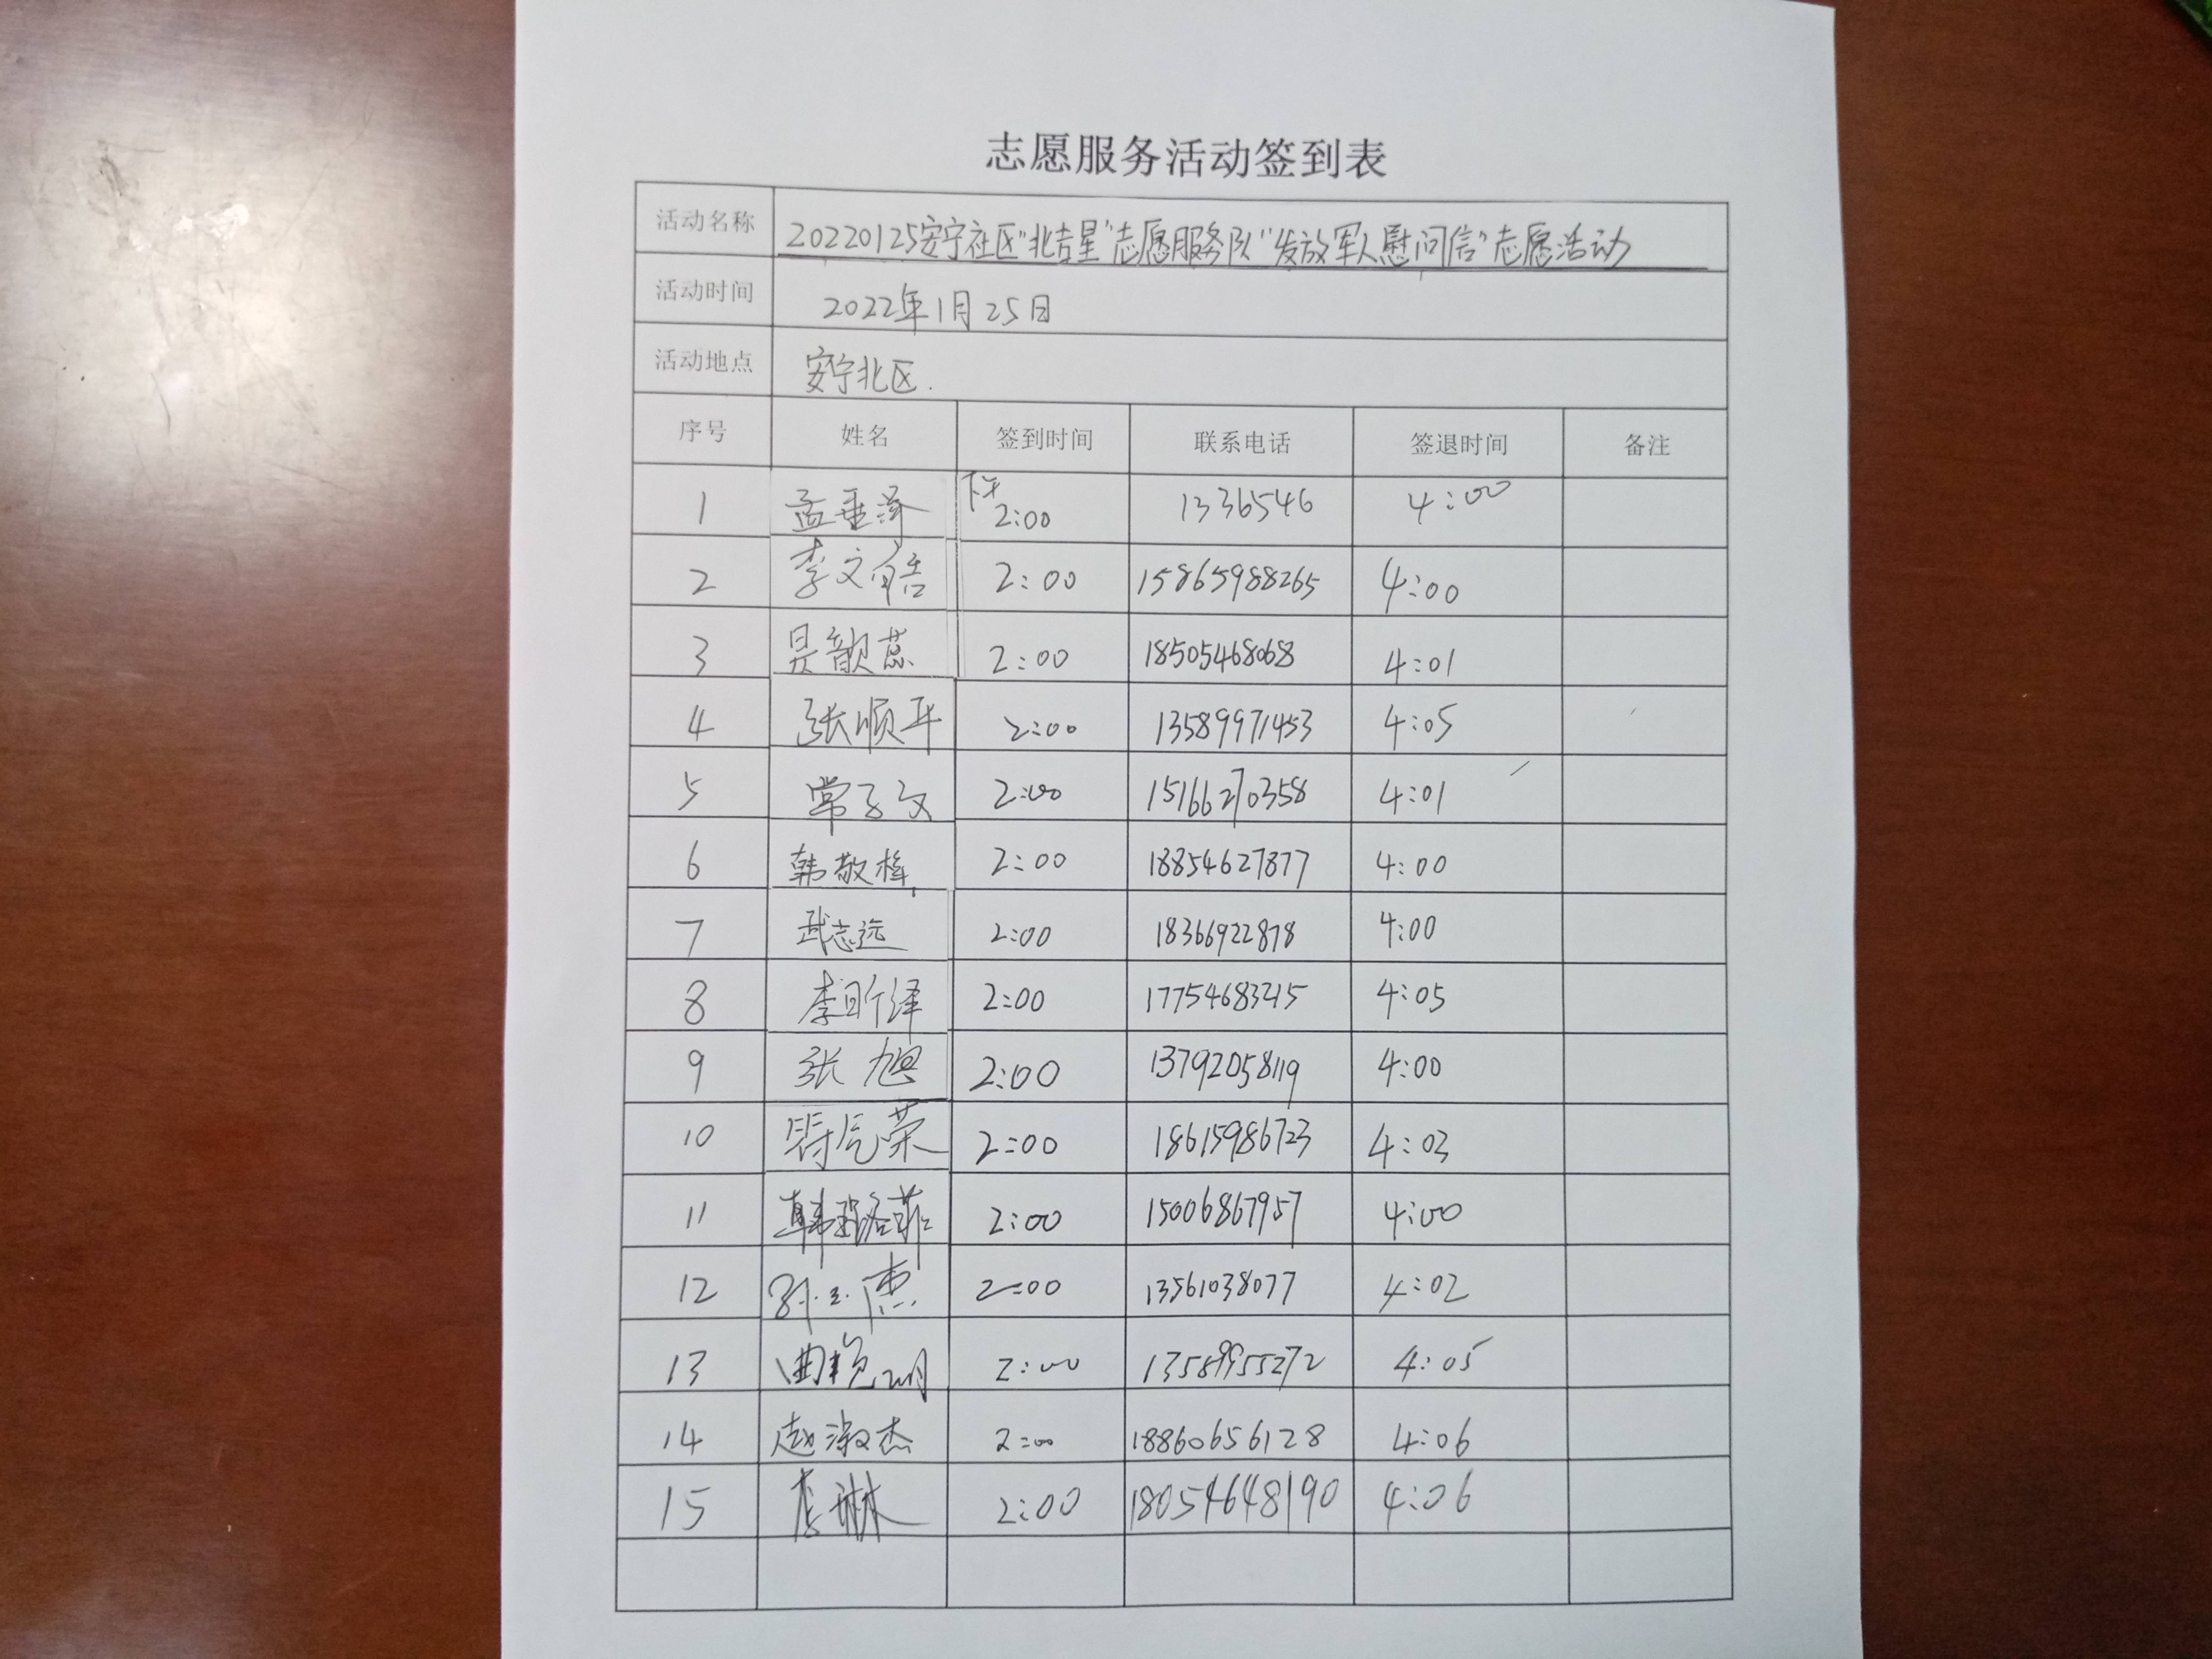 志愿服务活动签到表
活动名称 20220125安宁社区"北吉星"志愿服务队"发放军人慰问信"志愿活动
活动时间 2022年1月25日
活动地点 安宁北区.
序号 姓名 签到时间 联系电话 签退时间 备注
1 孟垂泽 下午2:00 1336546 4:00
2 李文皓 2:00 15865988265 4:00
3 昊歆蕊 2:00 18505468068 4:01
4 张顺平 2:00 13589971453 4:05
5 常子文 2:00 15166270358 4:01
6 韩敬梅 2:00 18854627877 4:00
7 武志远 2:00 18366922878 4:00
8 李昕泽 2:00 17754683215 4:05
9 张旭 2:00 13792058119 4:00
10 2:00 18615986723 4:03
11 2:00 15006867957 4:00
12 2:00 13561038077 4:02
13 2:00 13589955272 4:05
14 赵淑杰 2:00 18860656128 4:06
15 李琳 2:00 18054648190 4:06